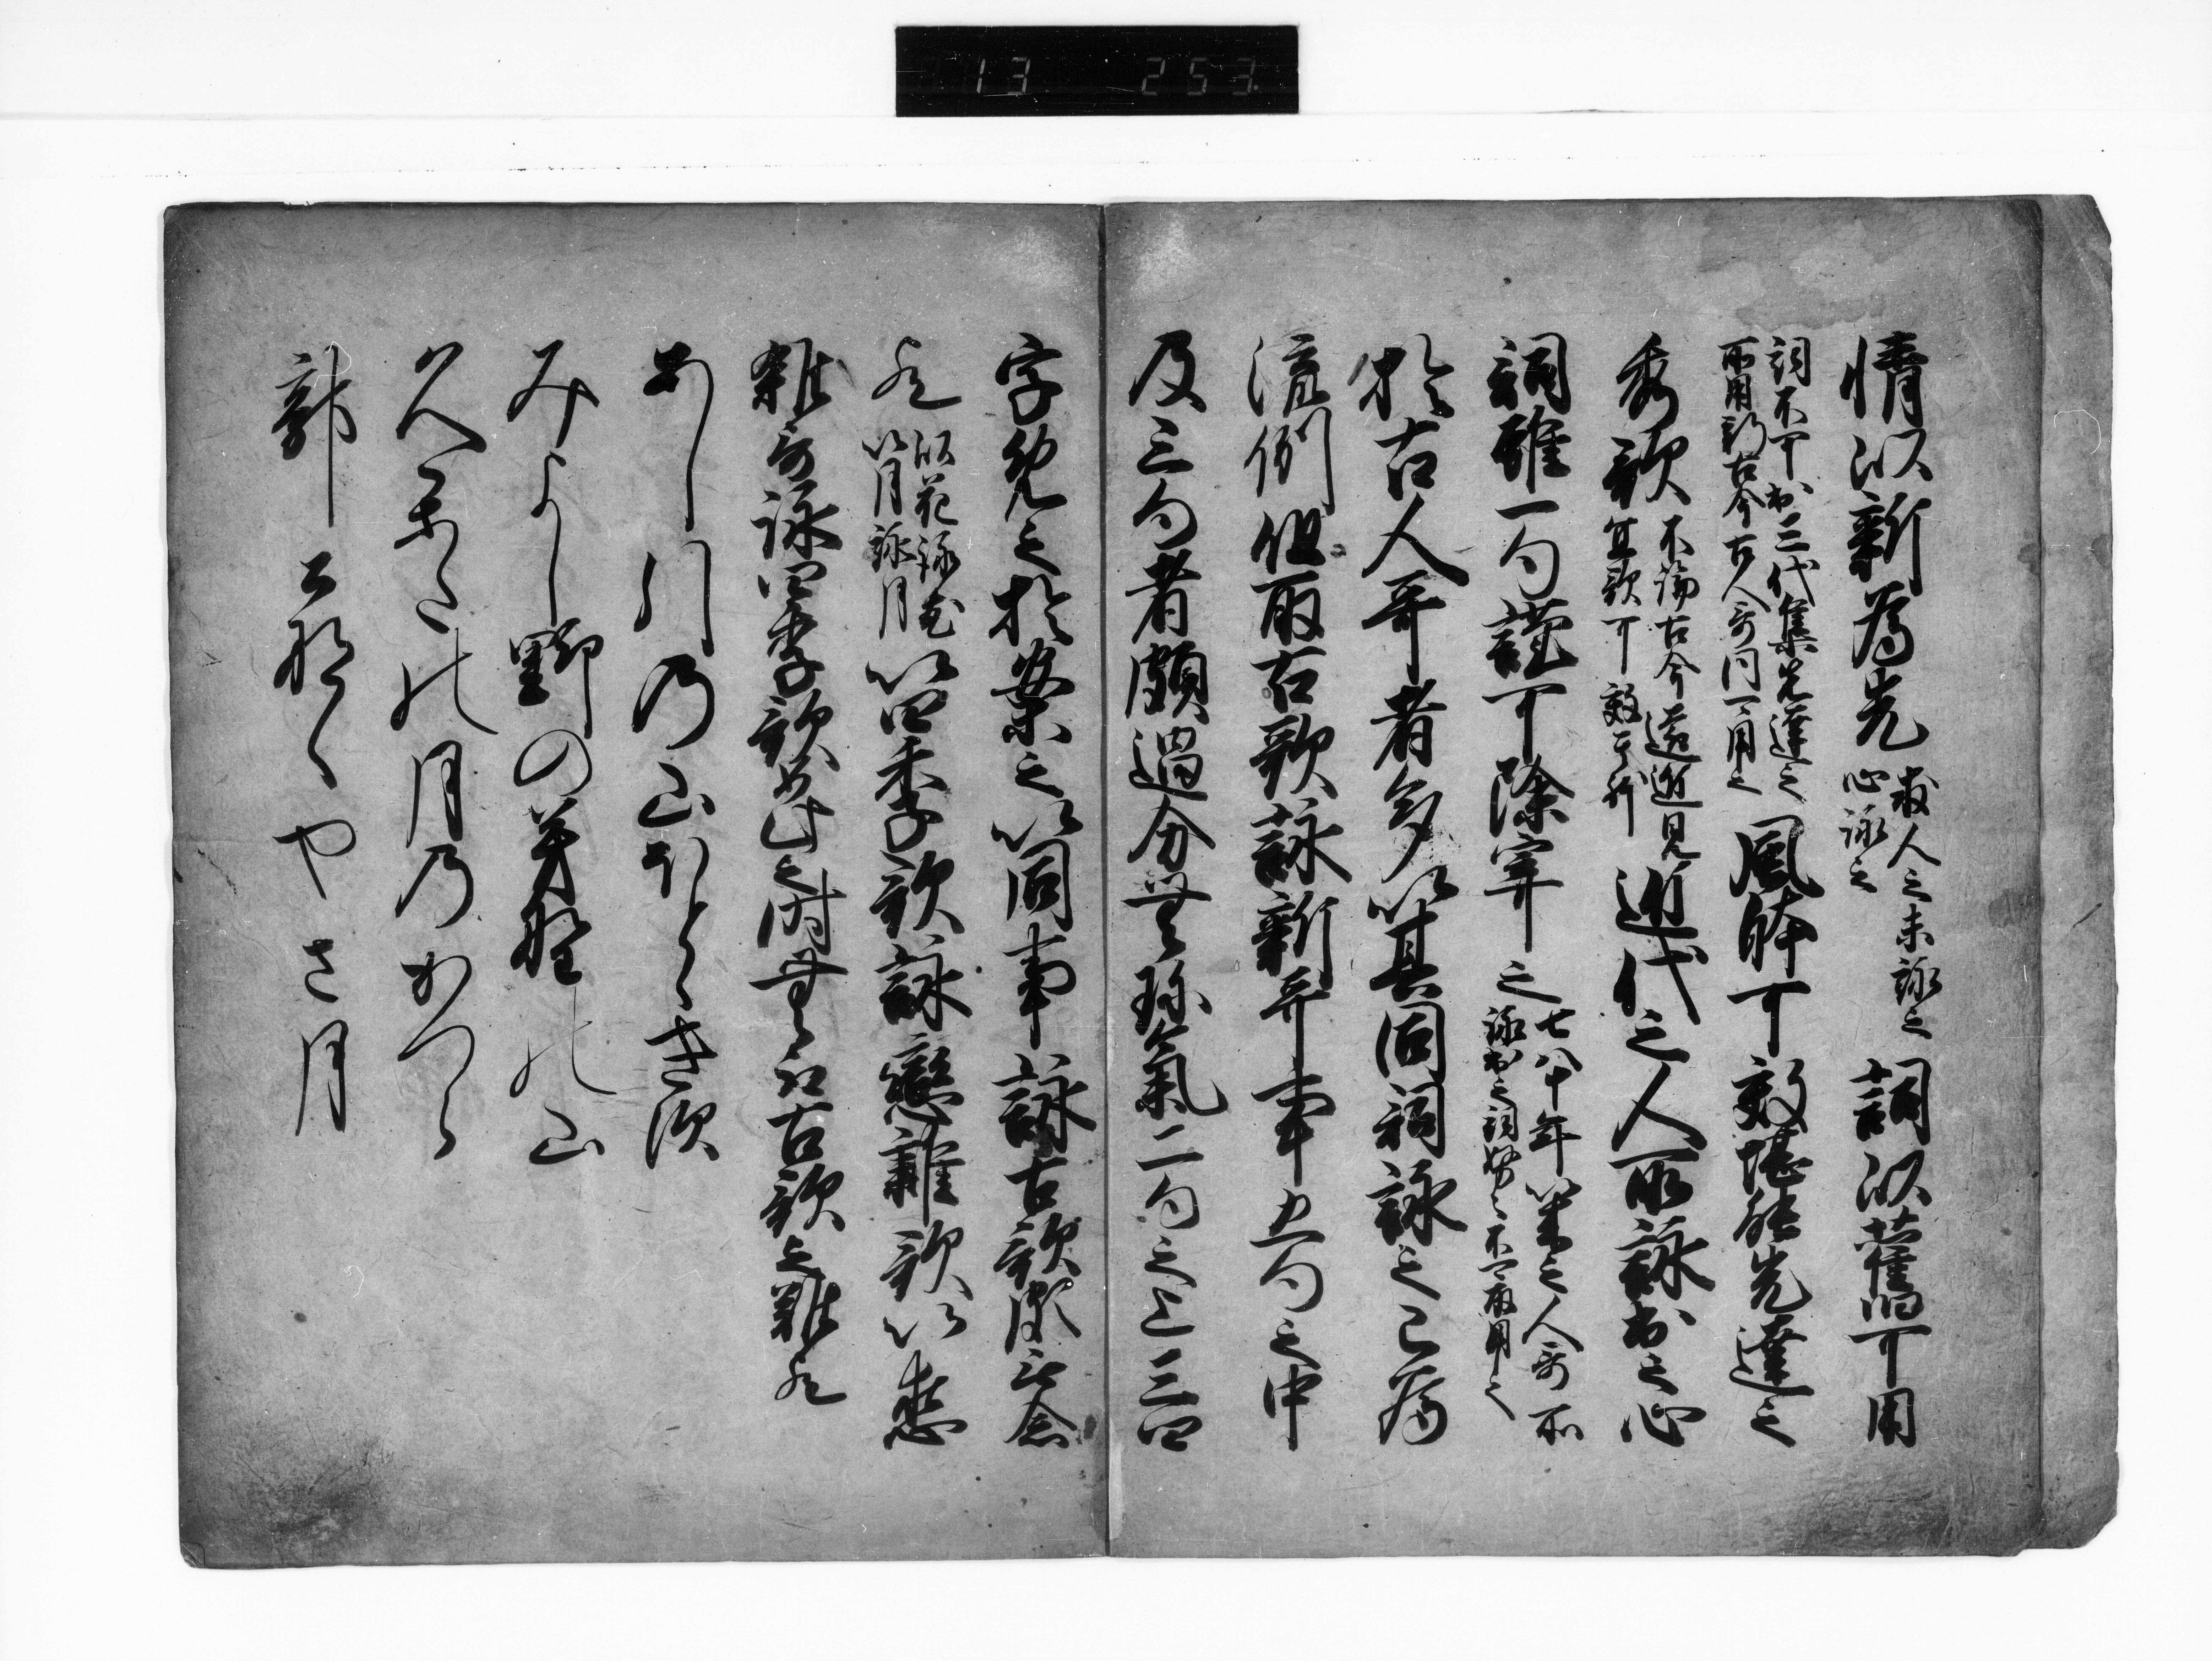 13 253
情以新為先
求人之未詠之
心詠之
詞以舊可用
詞不可出三代集先達之
所用新古今古人哥同可用之
風躰可效堪能先達之
秀歌
不論古今遠近見
宜歌可效其躰
近代之人所詠出之心
詞雖一句謹可除弃之
七八十年以来之人哥所
詠出之詞努々不可取用之
於古人哥者多以其同詞詠之已為
流例但取古歌詠新哥事五句之中
及三句者頗過分無珍氣二句之上三四
字免之於案之以同事詠古歌頗無念
歟
以花詠花
以月詠月
以四季歌詠戀雜歌以戀
雜哥詠四季歌如此之時無取古歌之難歟
あし引の山ほとゝきす
みよし野の芳野の山
久かたの月のかつら
郭公なくやさ月